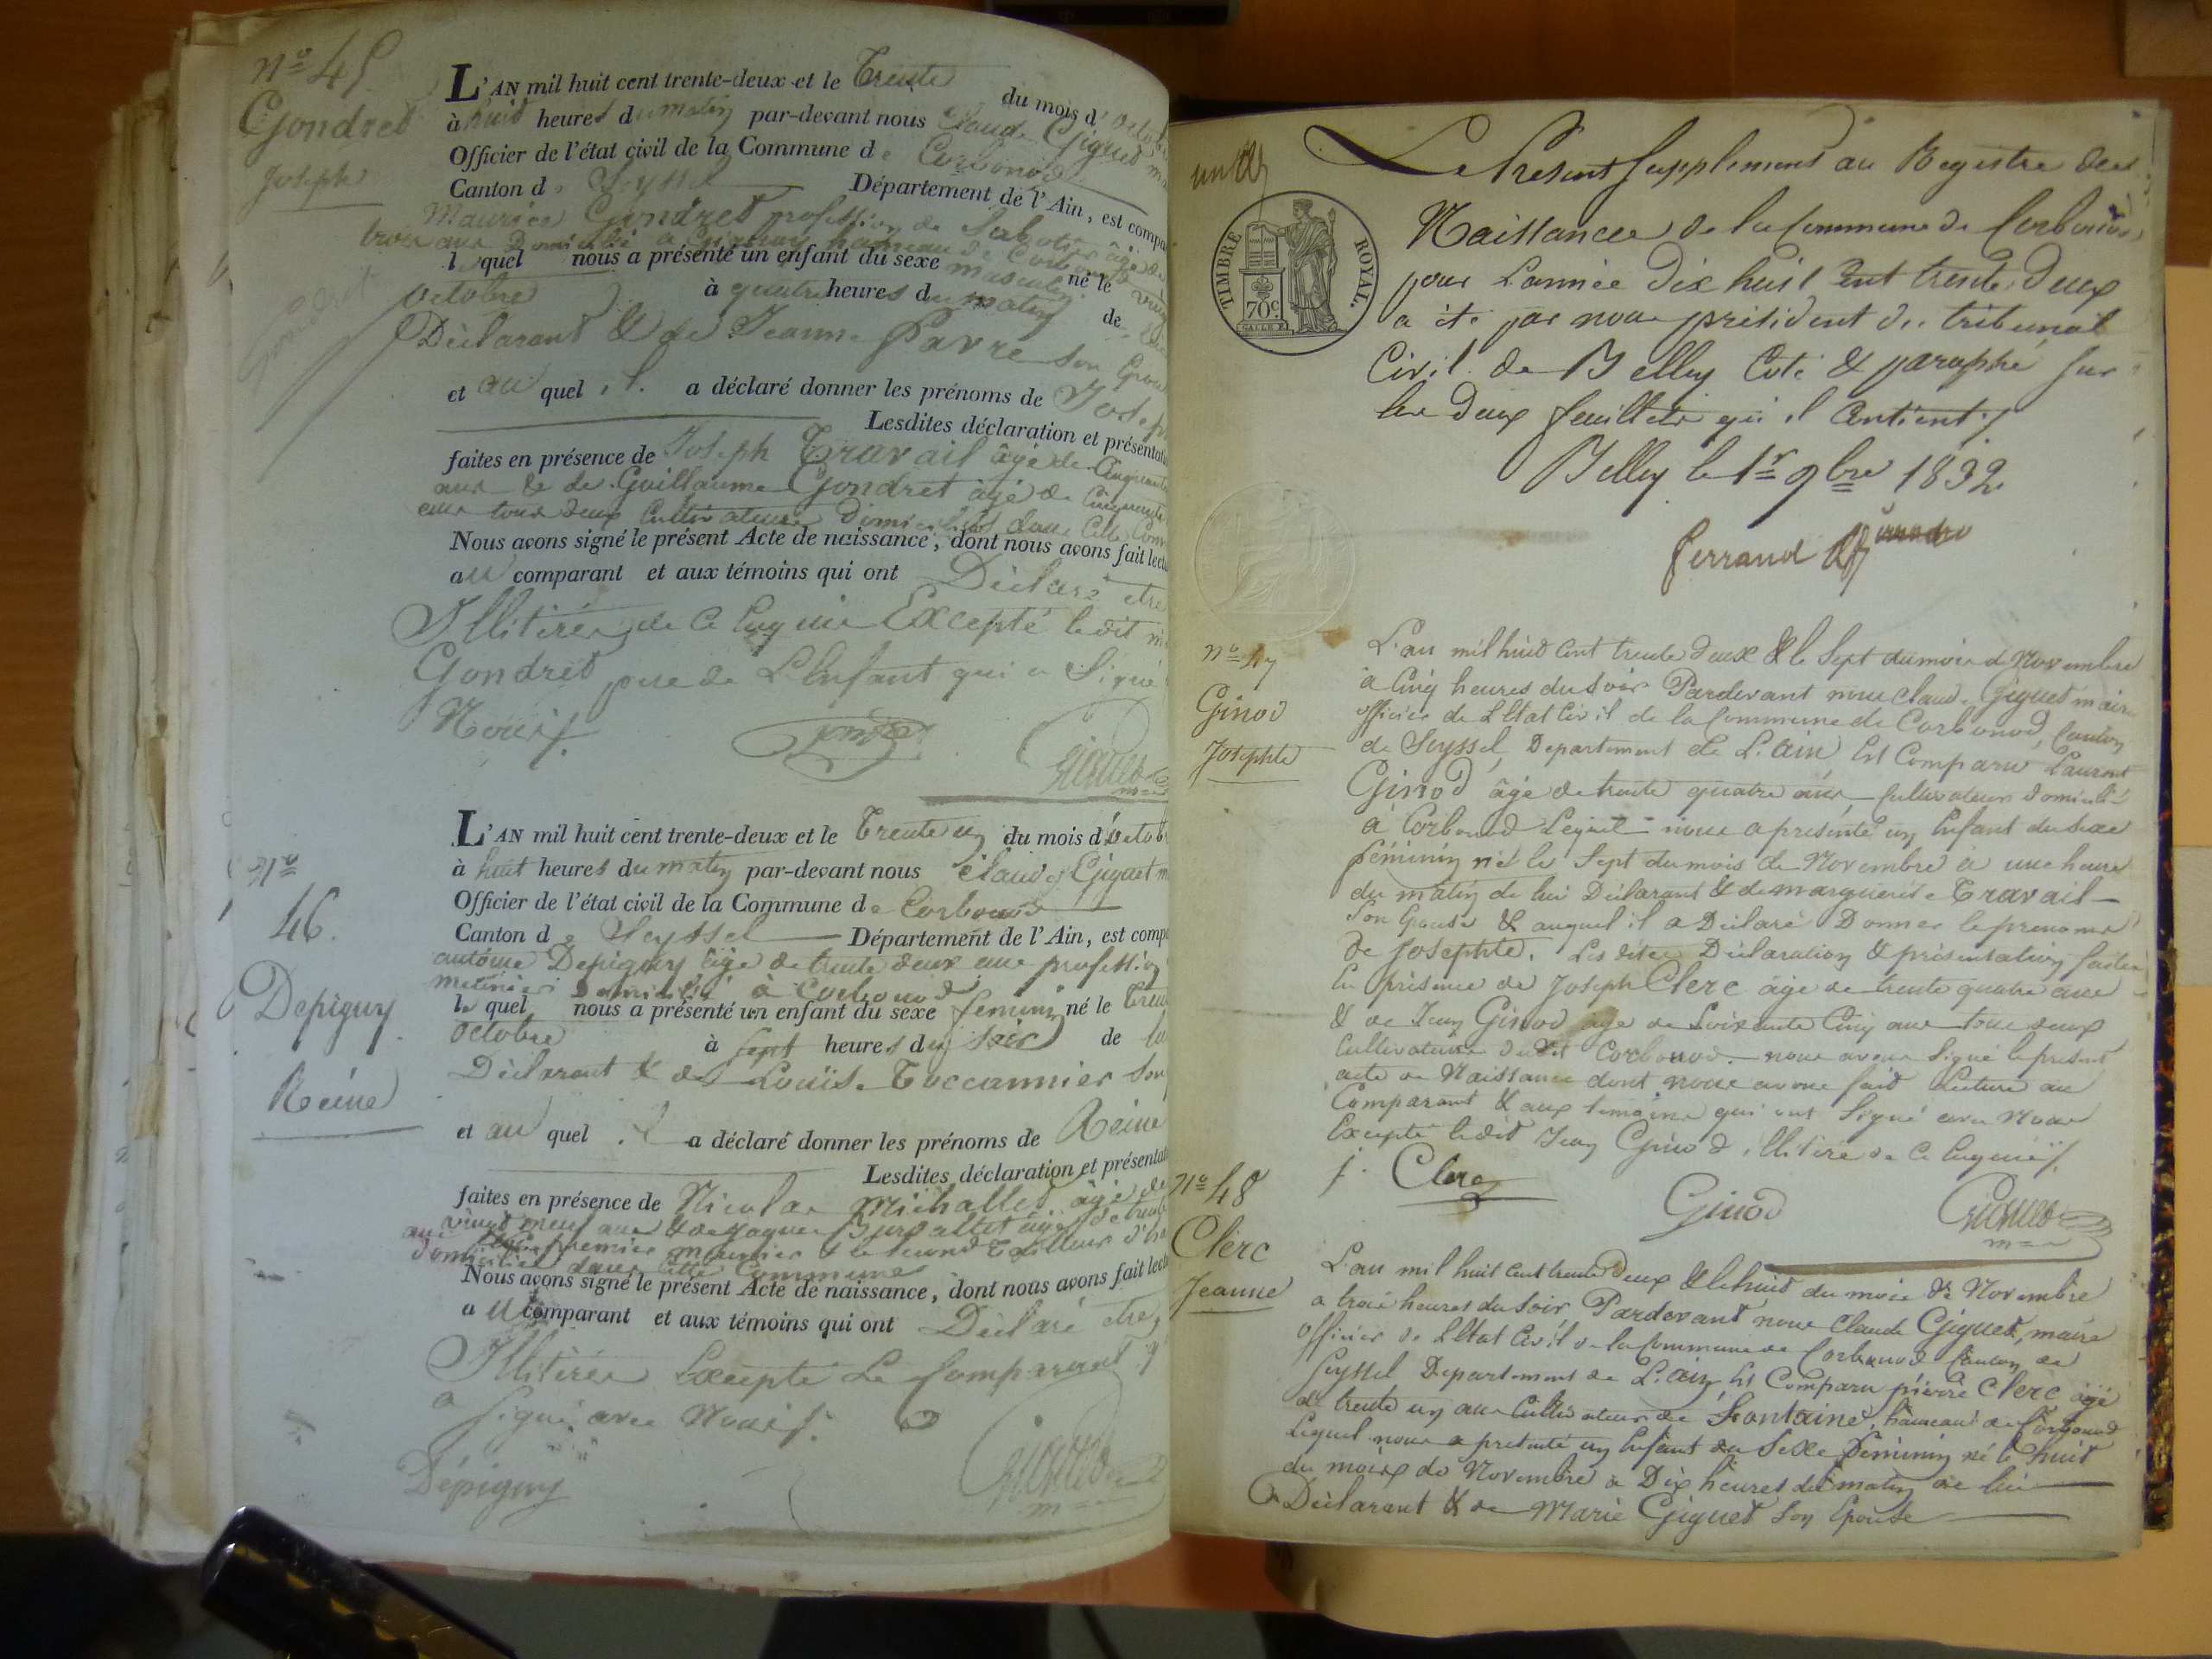 nº 45
Gondret
Joseph
L'AN mil huit cent trente-deux et le Trente du mois d'octob
à huit heures du matin par-devant nous Claude Giguet m
Officier de l'état civil de la Commune de Corbonod
Canton de Seyssel Département de l'Ain, est compa
Maurice Gondret profession de Sabotier âgé de
trois ans Domicilié à hameau de Corbonod
lequel nous a présenté un enfant du sexe masculin né le vingt
octobre à quatre heures du matin de
Déclarant & de Jeanne Favre son Epou
et au quel il a déclaré donner les prénoms de Josep
Lesdites déclaration et présentat
faites en présence de Joseph Travail âgé de Cinquante
ans & de Guillaume Gondret âgé de Cinquante
ans tous deux Cultivateurs Domiciliés dans Cette Com
Nous avons signé le présent Acte de naissance, dont nous avons fait lectu
au comparant et aux témoins qui ont Déclaré etre
Illitérés de ce Enquis Excepté le dit m
Gondret pere de L'Enfant qui a Signé
Nous /.
Giguet
m
nº
46.
Depigny
Reine
L'AN mil huit cent trente-deux et le Trente un du mois d'octob
à huit heures du matin par-devant nous Claude Giguet m
Officier de l'état civil de la Commune de Corbonod
Canton de Seyssel Département de l'Ain, est comp
antoine Depigny âgé de trente deux ans profession
meunier Domicilié à Corbonod
lequel nous a présenté un enfant du sexe feminin né le tren
octobre à sept heures du soir de lui
Déclarant & de Louïse Toccannier Son
et au quel il a déclaré donner les prénoms de Reine
Lesdites déclaration et présentat
faites en présence de Nicolas Michallet âgé de
vingt neuf ans & de Jaques Burdallet âgé de trente
ans le premier meunier & le second Tailleur d'ha
domiciliés dans Cette Commune
Nous avons signé le présent Acte de naissance, dont nous avons fait lectu
au comparant et aux témoins qui ont Déclaré etre
Illitérés Excepté Le Comparant q
a signé avec Nous /.
Dépigny
Giguet
m
Le Present Supplement au Registre des
Naissances de la Commune de Corbonod
pour L'année Dix huit Cent trente Deux
a été par nous président du tribunal
Civil de Belley Coté & paraphé sur
les Deux feuillets qu'il Contient /.
Belley le 1er 9bre 1832.
Ferrand
TIMBRE ROYAL.
70c.
nº 47
Ginod
Josephte
L'an mil huit Cent trente Deux & le Sept du mois de Novembre
à Cinq heures du Soir Pardevant nous Claude Giguet maire
officier de L'Etat Civil de la Commune de Corbonod, Canton
de Seyssel, Departement de L'ain Est Comparu Laurent
Ginod âgé de trente quatre ans Cultivateur domicilié
à Corbonod Lequel nous a présenté un Enfant du Sexe
féminin né le Sept du mois de Novembre à une heure
du matin de lui Déclarant & de marguerite Travail
son Epouse & auquel il a Déclaré Donner le prenoms
de Josephte. Les dites Déclaration & présentation faites
En présence de Joseph Clerc âgé de trente quatre ans
& de Jean Ginod âgé de Soixante Cinq ans tous deux
Cultivateurs dudit Corbonod. nous avons Signé le present
acte de Naissance dont nous avons fait Lecture au
Comparant & aux temoins qui ont Signé avec Nous
Excepté ledit Jean Ginod illitéré de ce Enquis /.
j. Clerc
Ginod
Giguet
m
Nº 48
Clerc
Jeanne
L'an mil huit Cent trente Deux & le huit du mois de Novembre
a trois heures du Soir Pardevant nous Claude Giguet, maire
Officier de L'Etat Civil de la Commune de Corbonod Canton de
Seyssel Departement de L'ain Est Comparu pierre Clerc âgé
de trente un ans Cultivateur de Fontaine, hameau de Corbonod
Lequel nous a présenté un Enfant du Sexe féminin né le huit
du mois de Novembre à Dix heures du matin de lui
Déclarant & de Marie Giguet Son Epouse